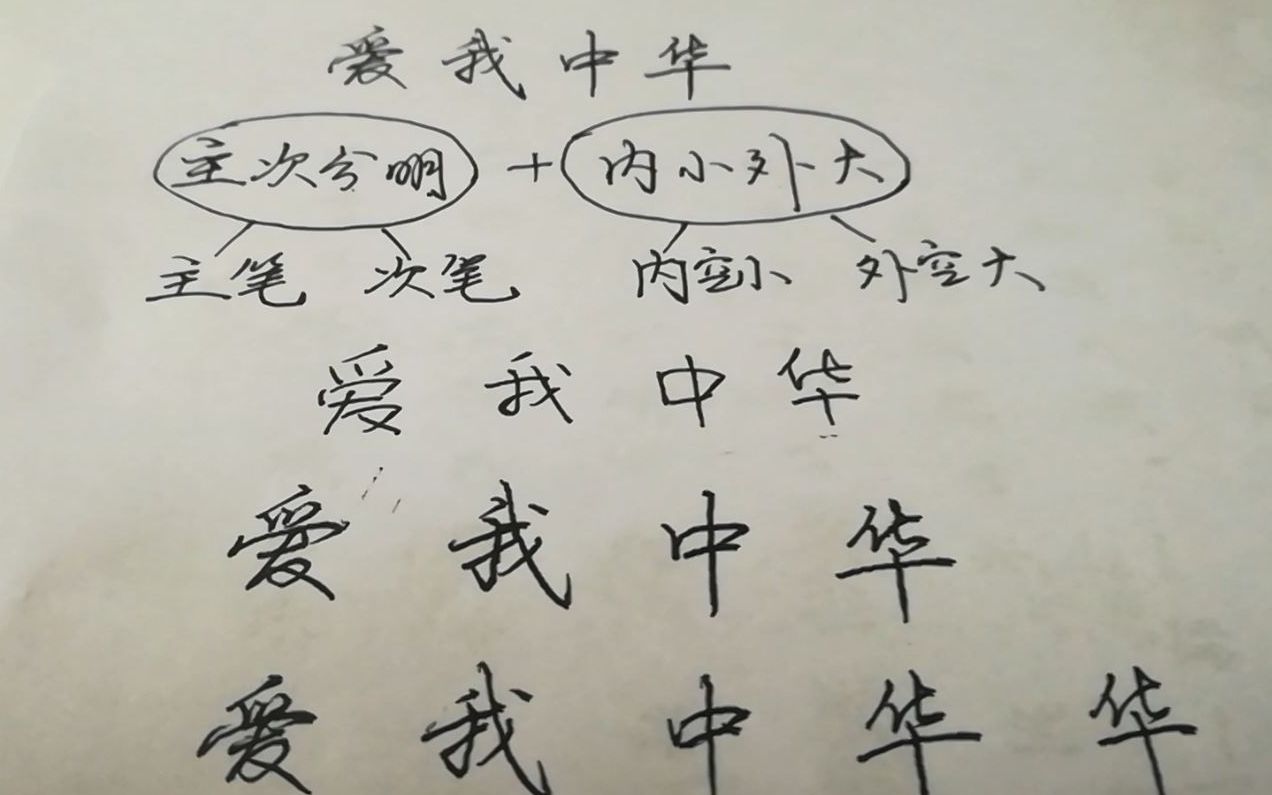 爱我中华
主次分明 + 内小外大
主笔 次笔 内空小 外空大
爱我中华
爱我中华
爱我中华华